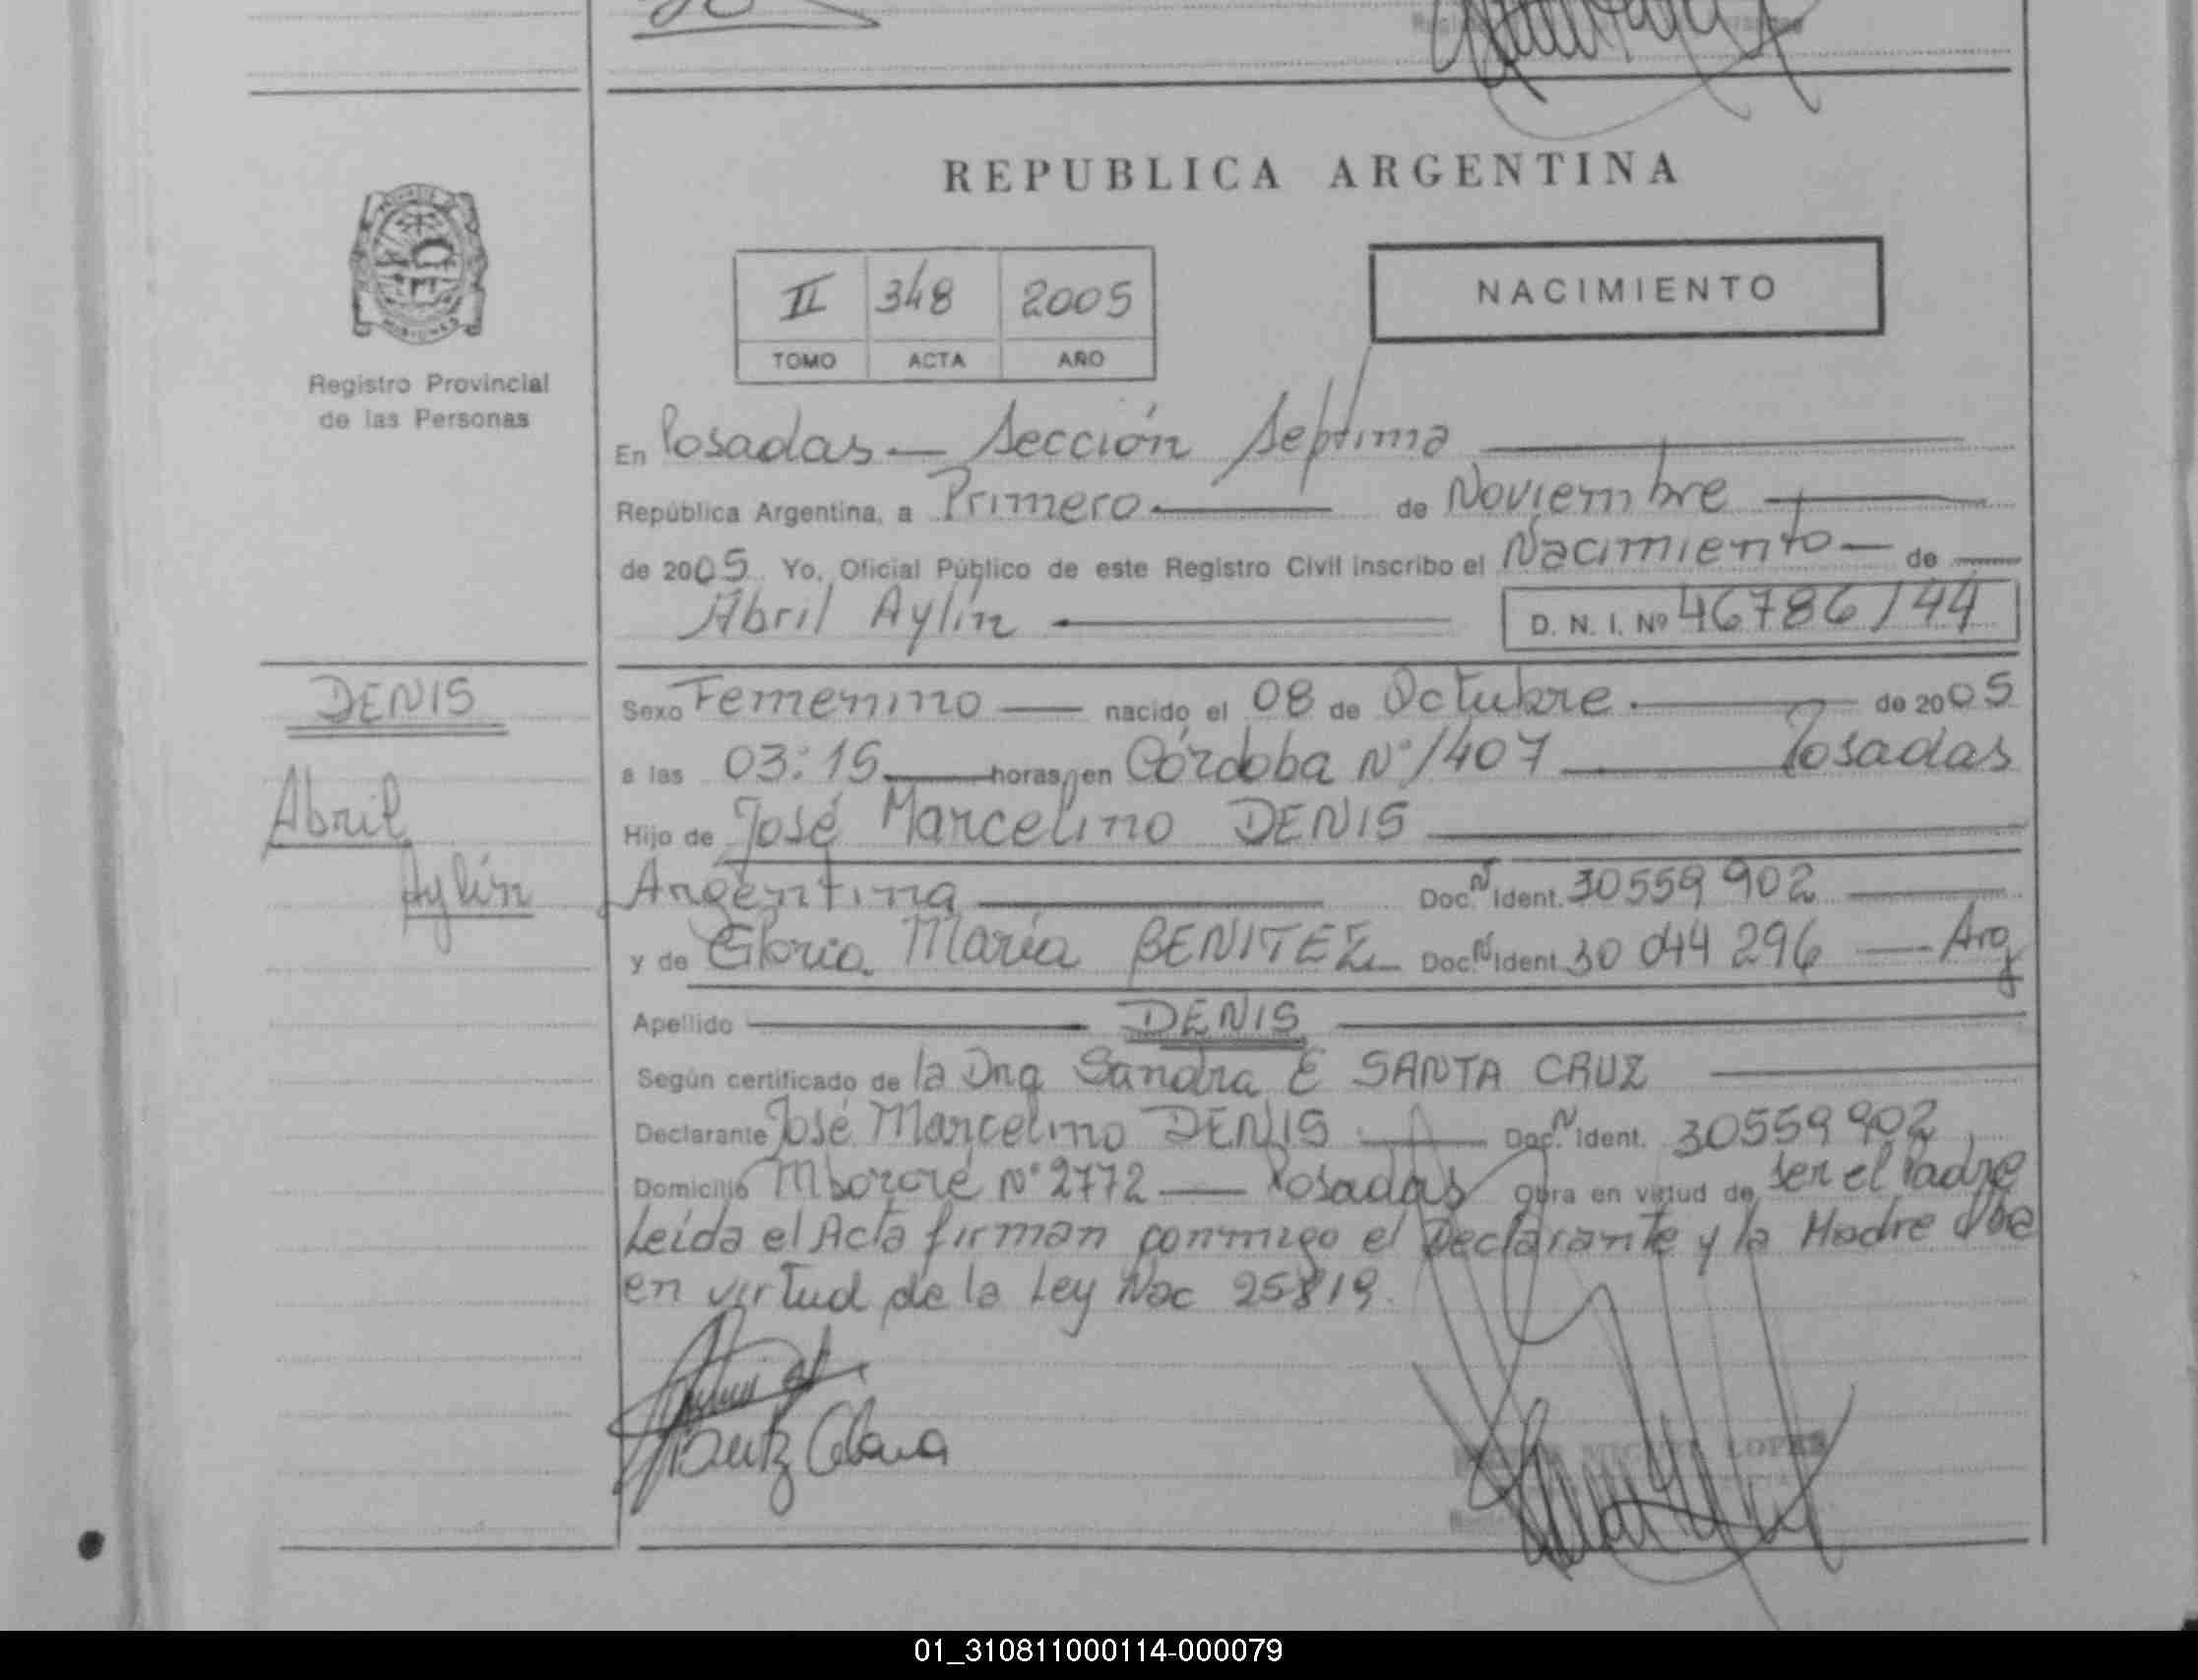 REPUBLICA ARGENTINA
NACIMIENTO
II 348 2005
TOMO ACTA AÑO
Registro Provincial
de las Personas
En Posadas — Sección Septima
República Argentina, a Primero de Noviembre
de 2005 Yo, Oficial Público de este Registro Civil inscribo el Nacimiento de
Abril Aylín D. N. I. Nº 46786144
DENIS
Abril
Aylín
Sexo Femenino nacido el 08 de Octubre de 2005
a las 03:15 horas, en Córdoba Nº 1407 Posadas
Hijo de José Marcelino DENIS
Argentina Doc. N Ident. 30559902
y de Gloria María BENITEZ Doc. N Ident. 30044296 — Arg
Apellido DENIS
Según certificado de la Dra Sandra E SANTA CRUZ
Declarante José Marcelino DENIS Doc. N Ident. 30559902
Domicilio Mbororé Nº 2772 — Posadas Obra en virtud de ser el Padre
Leída el Acta firman conmigo el Declarante y la Madre
en virtud de la Ley Nac 25819.
MIGUEL LOPES
01_310811000114-000079